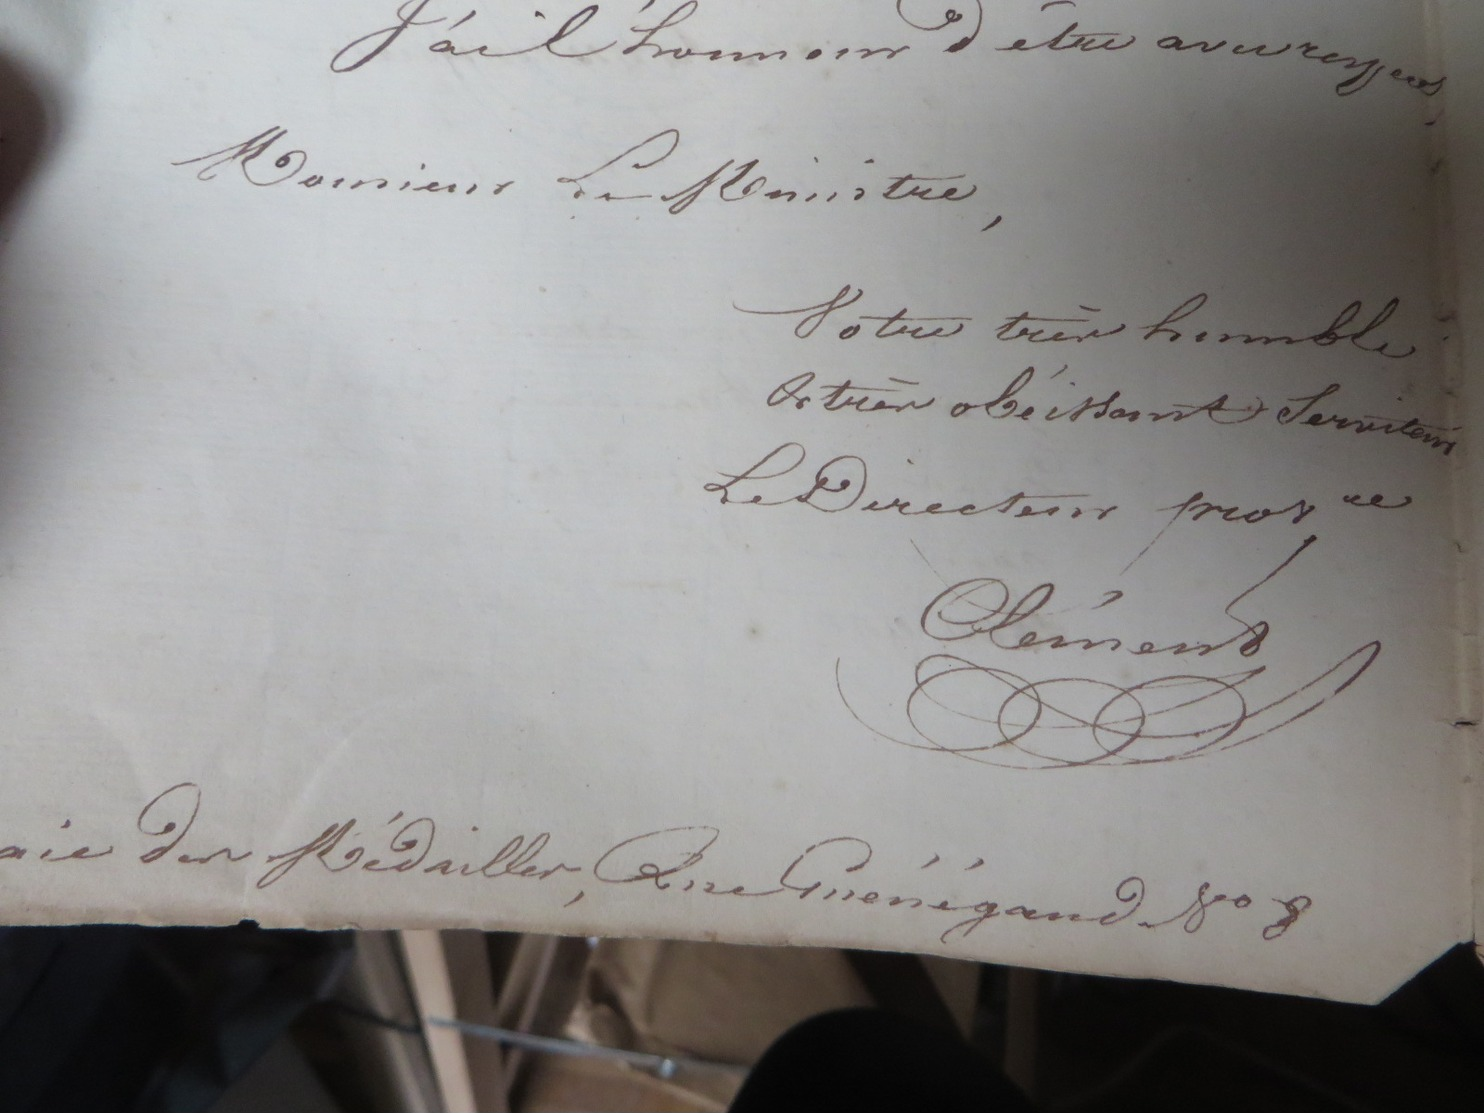 J'ai l'honneur d'être avec respect,
Monsieur Le Ministre,
Votre très humble
& très obéissant Serviteur
Le Directeur prov.re
Clément
aie des Médailles, Rue Guénégaud No 8